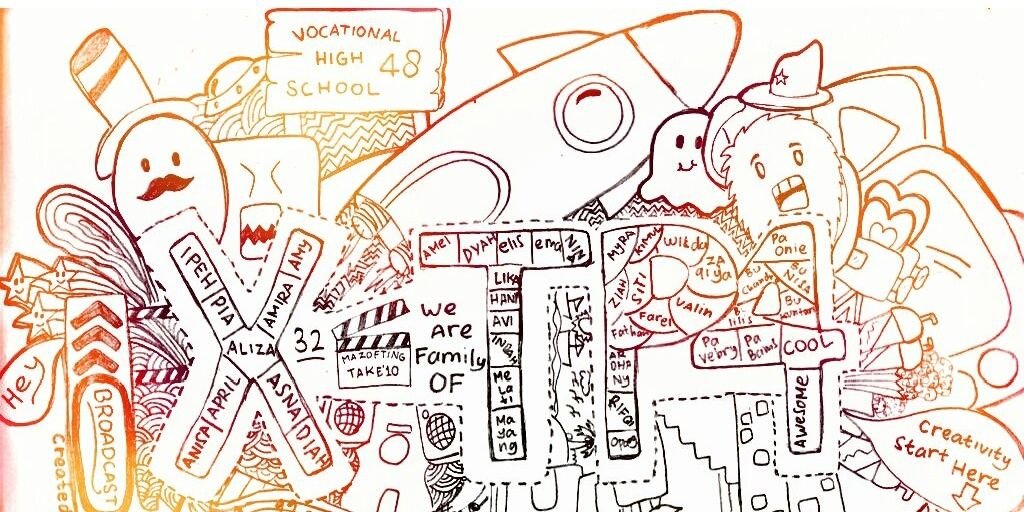 VOCATIONAL
HIGH 48
SCHOOL
IPEH
PIA
AMY
AMIRA
ALIZA
ANISA
APRIL
ASNA
DIAH
32
MAZOFTING
TAKE'10
we
Are
Family
OF
AMEl
DYAH
elis
ema
NIZA
LIKA
HANI
AVI
INDAH
Me
La
ti
Ma
ya
ng
MYRA
Kimu
Wilda
ZA
qiya
ZIAH
Siti
Farel
Valin
Fathan
AR
DHA
NY
RIFQI
Opay
Pa
Onie
Bu
Bu
Bu
Pa
Vebry
Pa
COOL
AWESOME
Hey
BROADCAST
Created
Creativity
Start Here